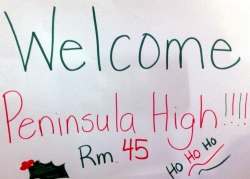 Welcome
Peninsula High!!!!
Rm. 45
HO HO HO